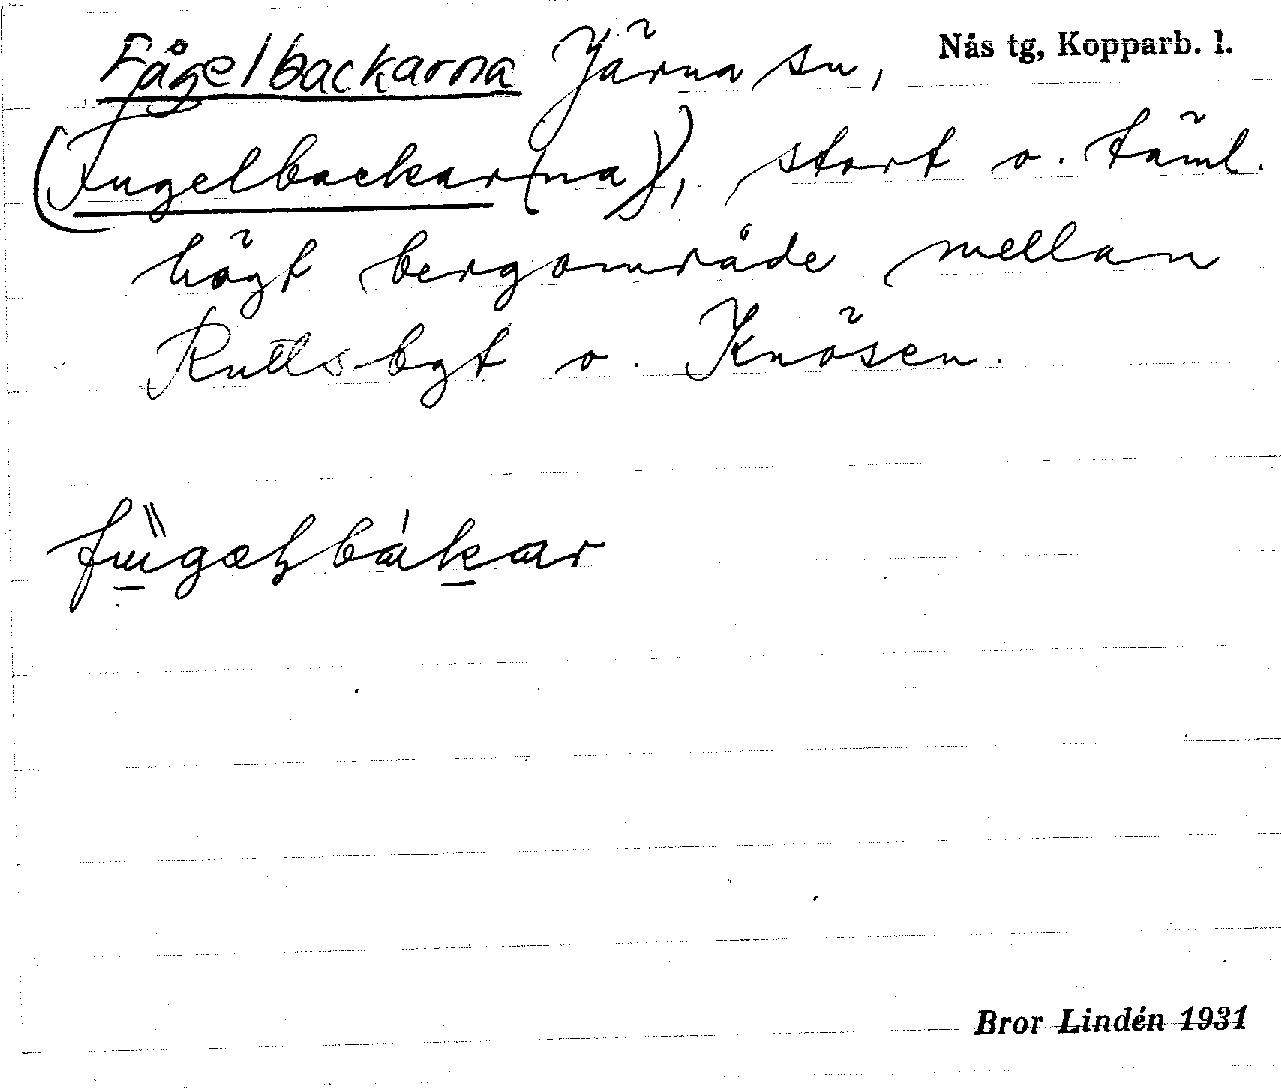 Fågelbackarna Järna sn, Nås tg, Kopparb. l.
(Fugelbackar(na)), stort o. täml.
högt bergområde mellan
Rullsbgt o. Knösen.
Bror Lindén 1931